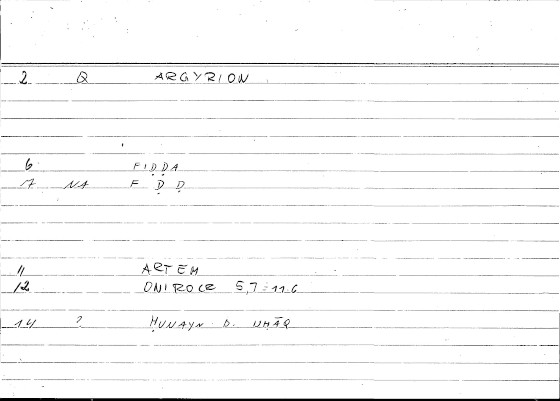 2 Q ARGYRION
6 FIḌḌA
7 NA F Ḍ Ḍ
11 ARTEM
12 ONIROCR 5,7 = 11 6
14 ? ḤUNAYN B.